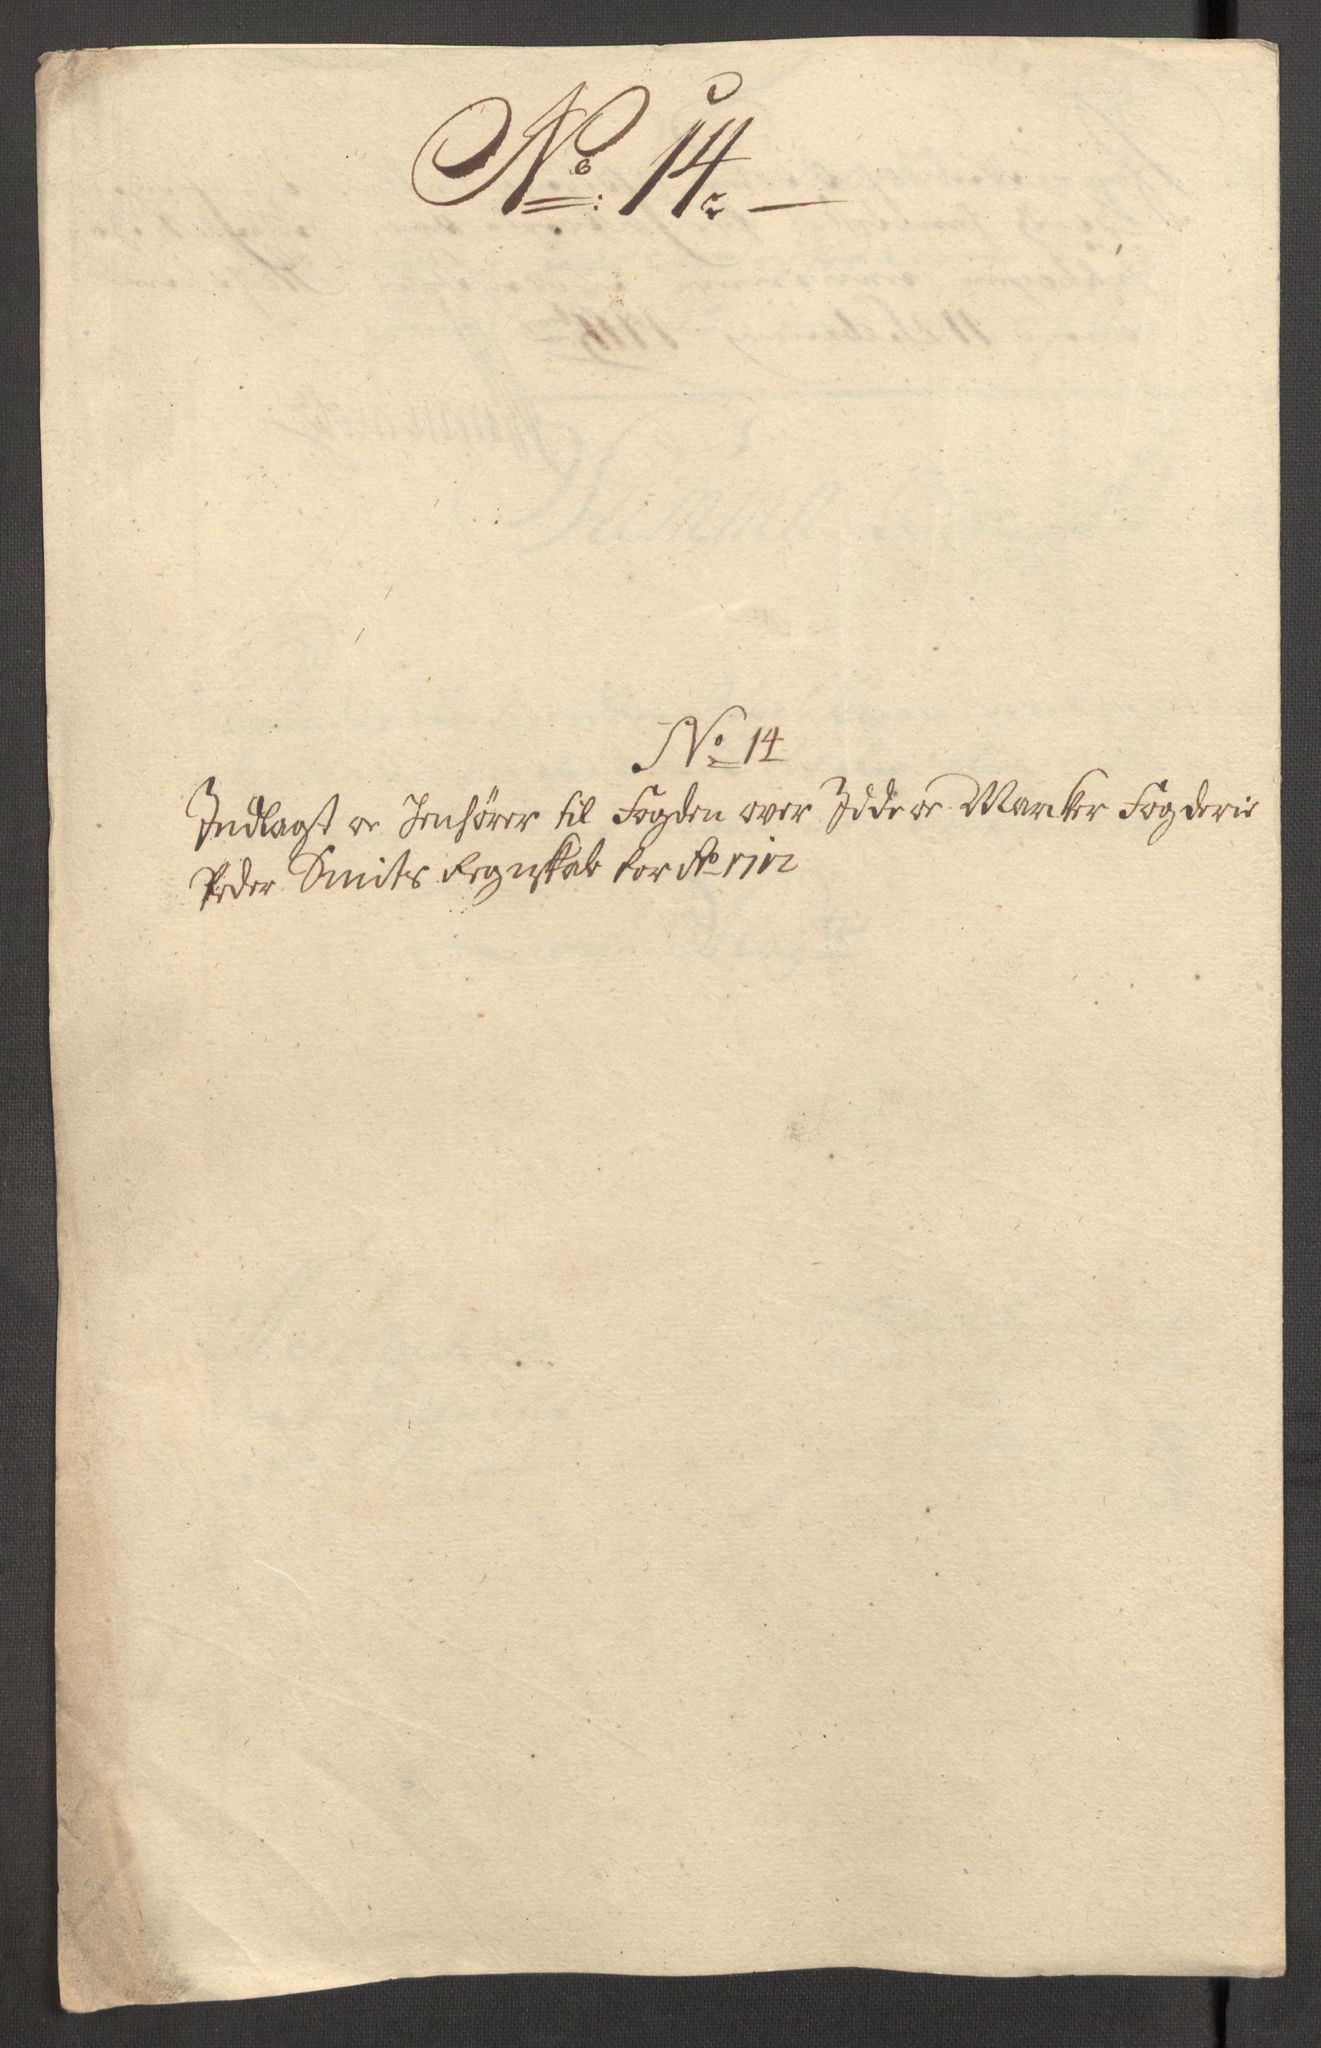 No: 14
No 14
Indlagt oc Henhører til Fogden over Idde oc Marcker Fogderie
Peder Smits Regnskab for Ao 1712